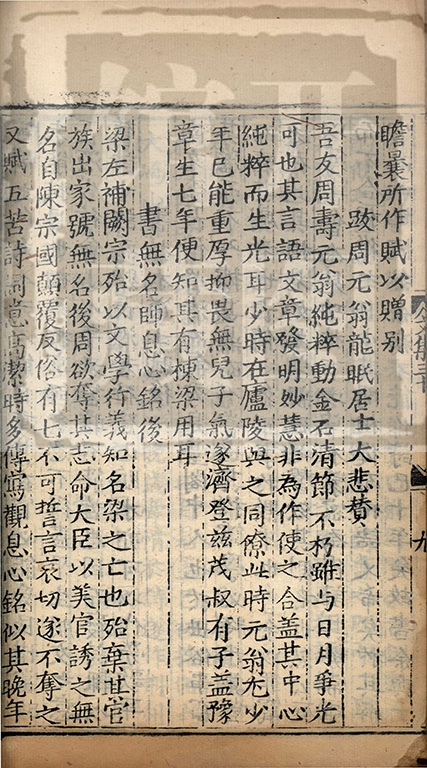 瞻㬥所作賦以贈別
跋周元翁龍眠居士大悲賛
吾友周壽元翁純粹動金石清節不朽雖与日月爭光
可也其言語文章發明妙慧非為作使之合盖其中心
純粹而生光耳少時在廬陵與之同僚此時元翁尤少
年已能重厚抑畏無兒子氣遂濟登兹茂叔有子盖豫
章生七年便知其有棟梁用耳
書無名師息心銘後
梁左補闕宗殆以文學行義知名梁之亡也殆棄其官
族出家號無名後周欲奪其志命大臣以美官誘之無
名自陳宗國顛覆反俗有七不可誓言哀切遂不奪之
又賦五苦詩詞意高潔時多傳寫觀息心銘似其晚年
九